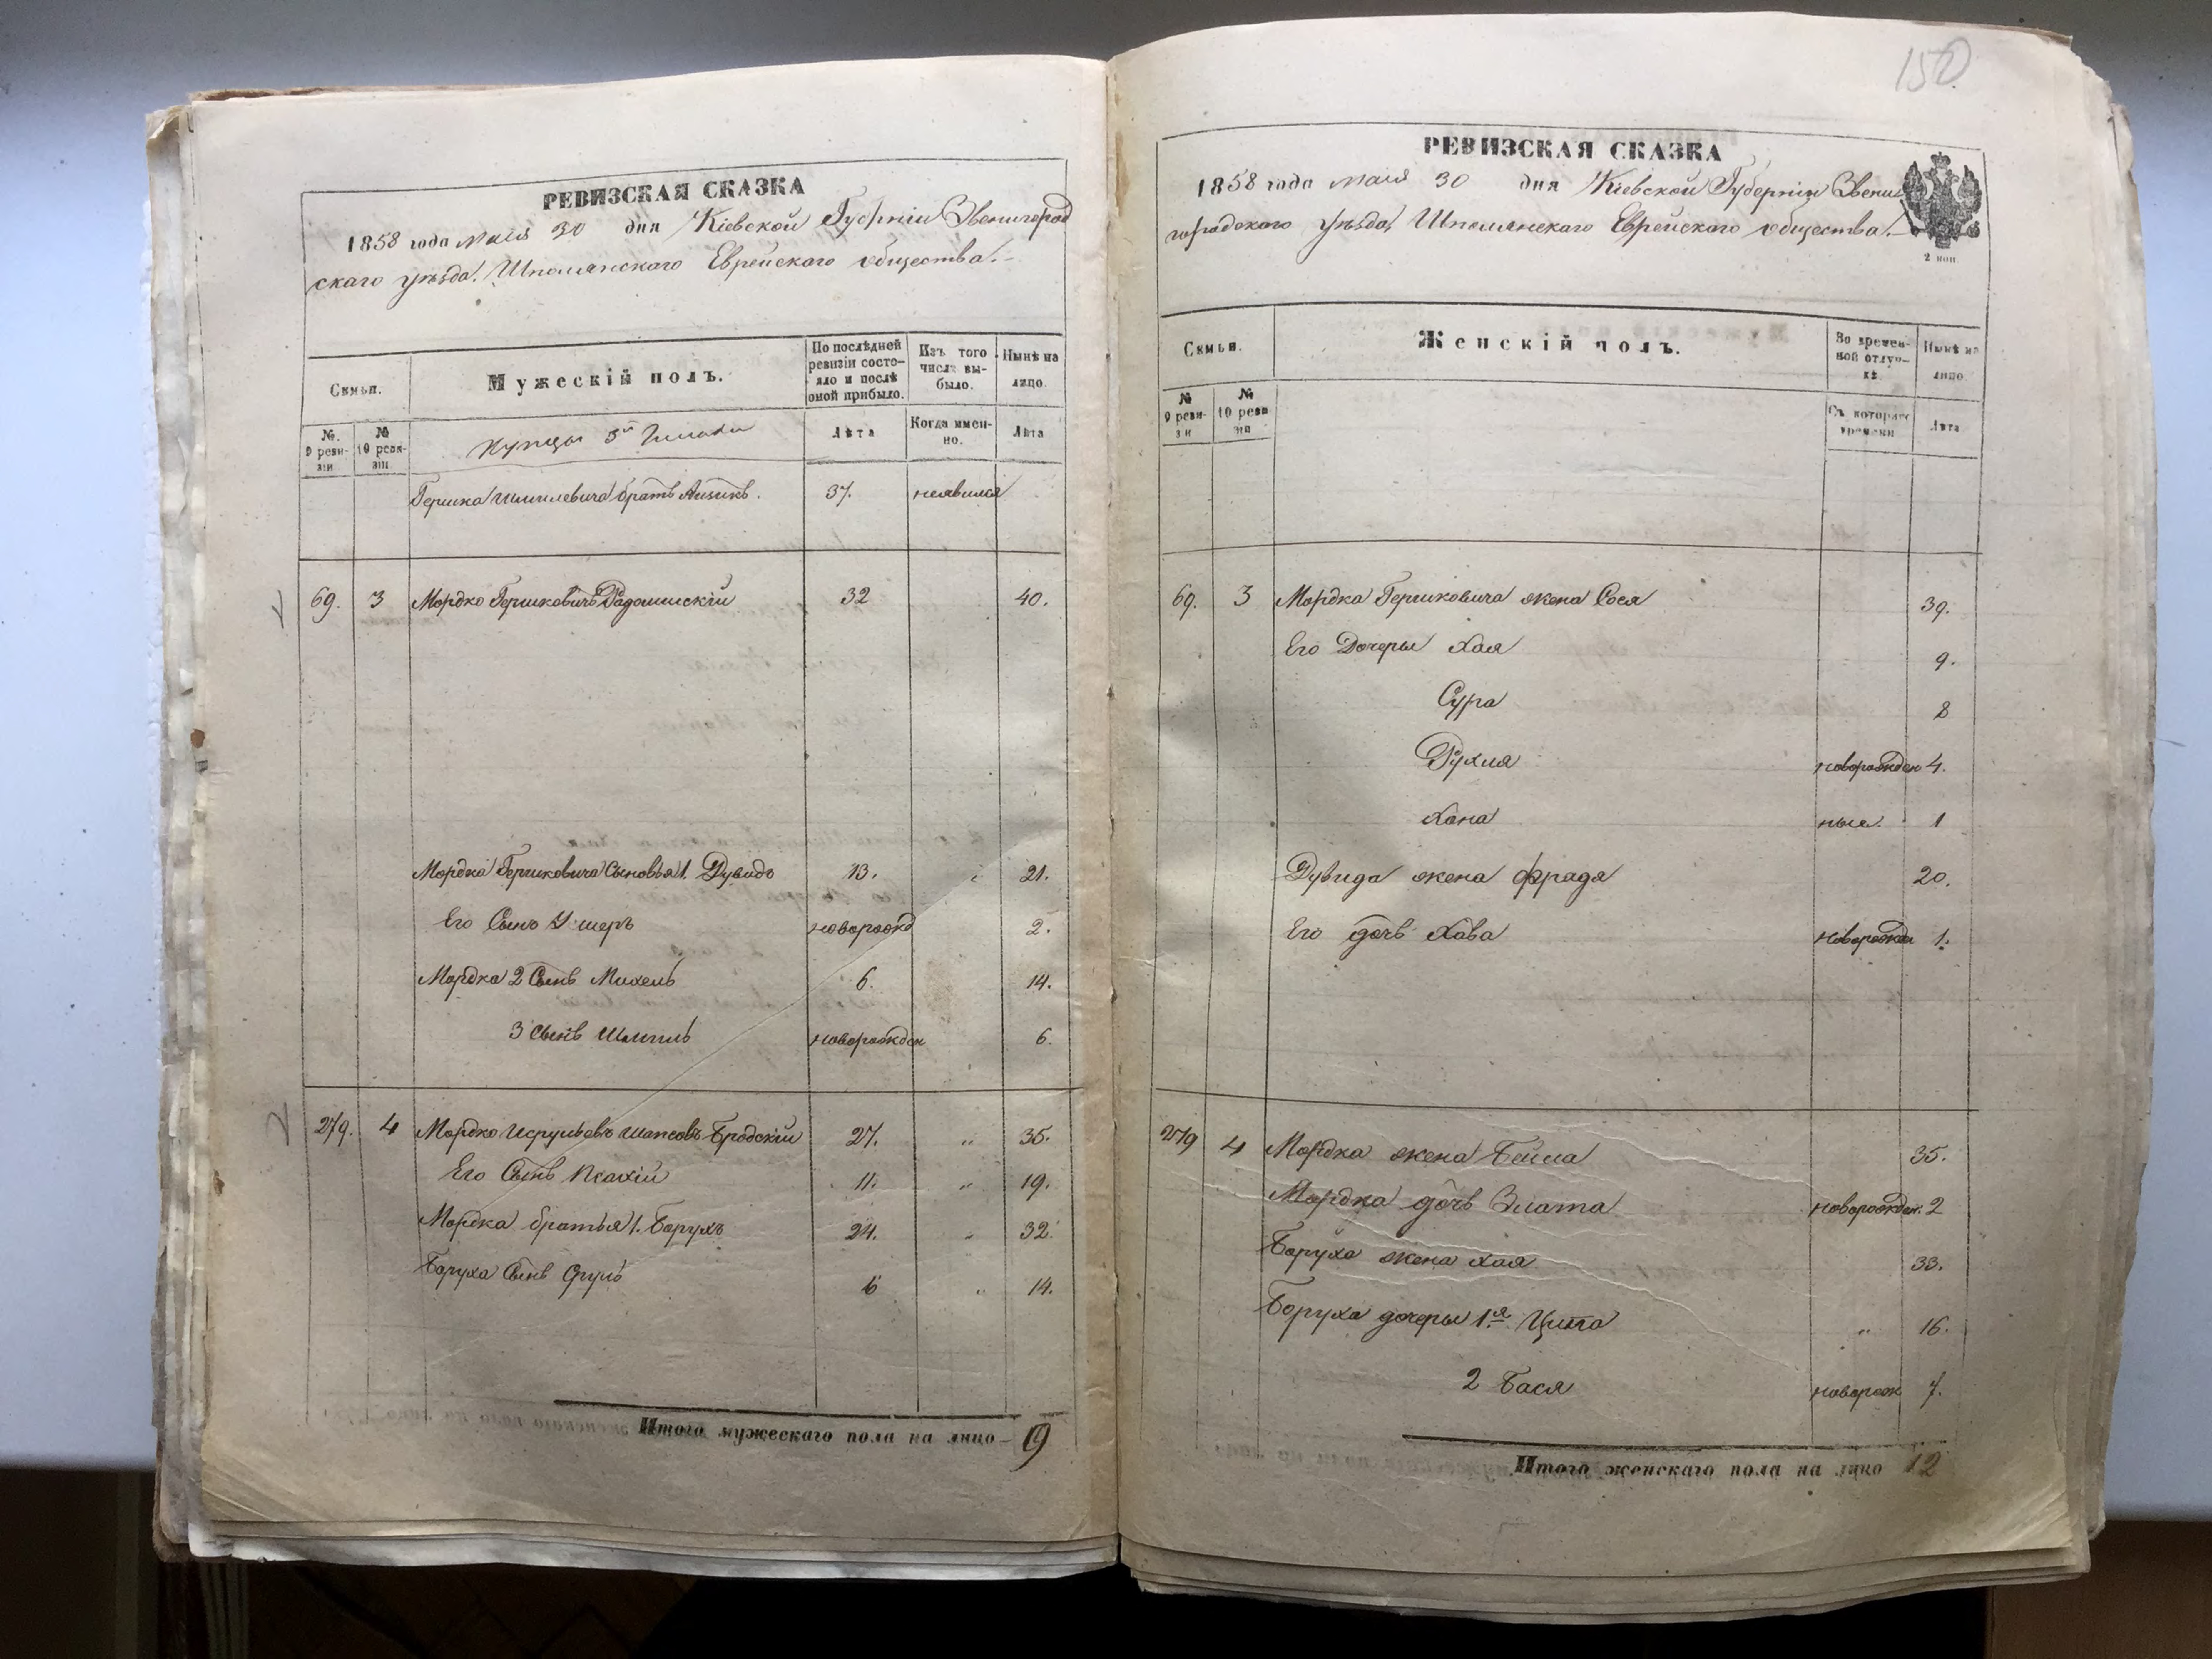 150
РЕВИЗСКАЯ СКАЗКА
1858 года мая 30 дня Кіевской Губерніи Звенигород
скаго уѣзда Шполянскаго Еврейскаго общества.
Семьи.
Мужескій полъ.
По послѣдней ревизіи состо-
яло и послѣ
оной прибыло.
Изъ того
числа вы-
было.
Нынѣ на
лицо.
№
9 реви-
зіи
№
10 реви-
зіи
Купцы 3й Гильдіи
Лѣта
Когда имен-
но.
Лѣта
Гершка Шмилевича братъ Айзикъ. 37. неявился
69. 3 Мордко Гершковичъ Радомискій 32 40.
Мордка Гершковича Сыновья 1. Дувидъ 13. 21.
Его Сынъ Ушеръ новорожд 2.
Мордка 2 Сынъ Михель 6. 14.
3 Сынъ Шмиль новорожден 6.
279. 4 Мордко Исрульовъ Шапсовъ Бродскій 27. " 35.
Его Сынъ Псахій 11. " 19.
Мордка братья 1. Борухъ 24. " 32.
Боруха Сынъ Сруль 6 " 14.
Итого мужескаго пола на лицо— 9
РЕВИЗСКАЯ СКАЗКА
1858 года мая 30 дня Кіевской Губерніи Звени
городского уѣзда, Шполянскаго Еврейскаго общества.
2 коп
Семьи.
Женскій полъ.
Во времен-
ной отлуч-
кѣ.
Нынѣ на
лицо
№
9 реви-
зіи
№
10 реви
зіи
Съ котораго
времени
Лѣта
69. 3 Мордка Гершковича жена Сося 39.
Его Дочеры Хая 9.
Сура 8
Рухля новорожден 4.
Хана ные. 1
Дувида жена Фрадя 20.
Его дочь Хава новорожден 1.
279 4 Мордка жена Бейла 35.
Мордка дочь Злата новорожден. 2
Боруха жена Хая 33.
Боруха дочеры 1я Цита " 16.
2 Бася новорож 7.
Итого женскаго пола на лицо 12